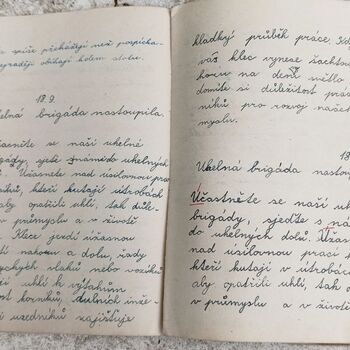 se spíše přecházejí než pospícha-
nejraději obíhají kolem stolu.
18.9.
elná brigáda nastoupila.
častněte se naší uhelné
gády, sjeďte s námi do uhelných
Účastněte nad úsilovnou prac
kteří kutají v útrobách
aby opatřili uhlí, tak důle-
průmyslu a v životě
Klece jezdí úžasnou
stí nahoru a dolů, řady
vlaků nebo vozíků
uhlí k výtahům
ost horníků, důlních inže-
i úředníků zajišťuje
hladký průběh práce. Kdy
vás klec vynese šachtou
horu na denní světlo
domíte si důležitost prá
níků pro rozvoj našeh
myslu.
18
Uhelná brigáda nastou
Účastněte se naší uhe
brigády, sjeďte s ná
do uhelných dolů. Úžas
nad úsilovnou prací
kteří kutají v útrobá
aby opatřili uhlí, ta
v průmyslu a v životě